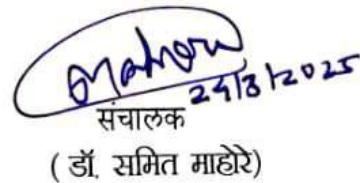 Mahore
29/3/2025
संचालक
( डॉ. समित माहोरे)